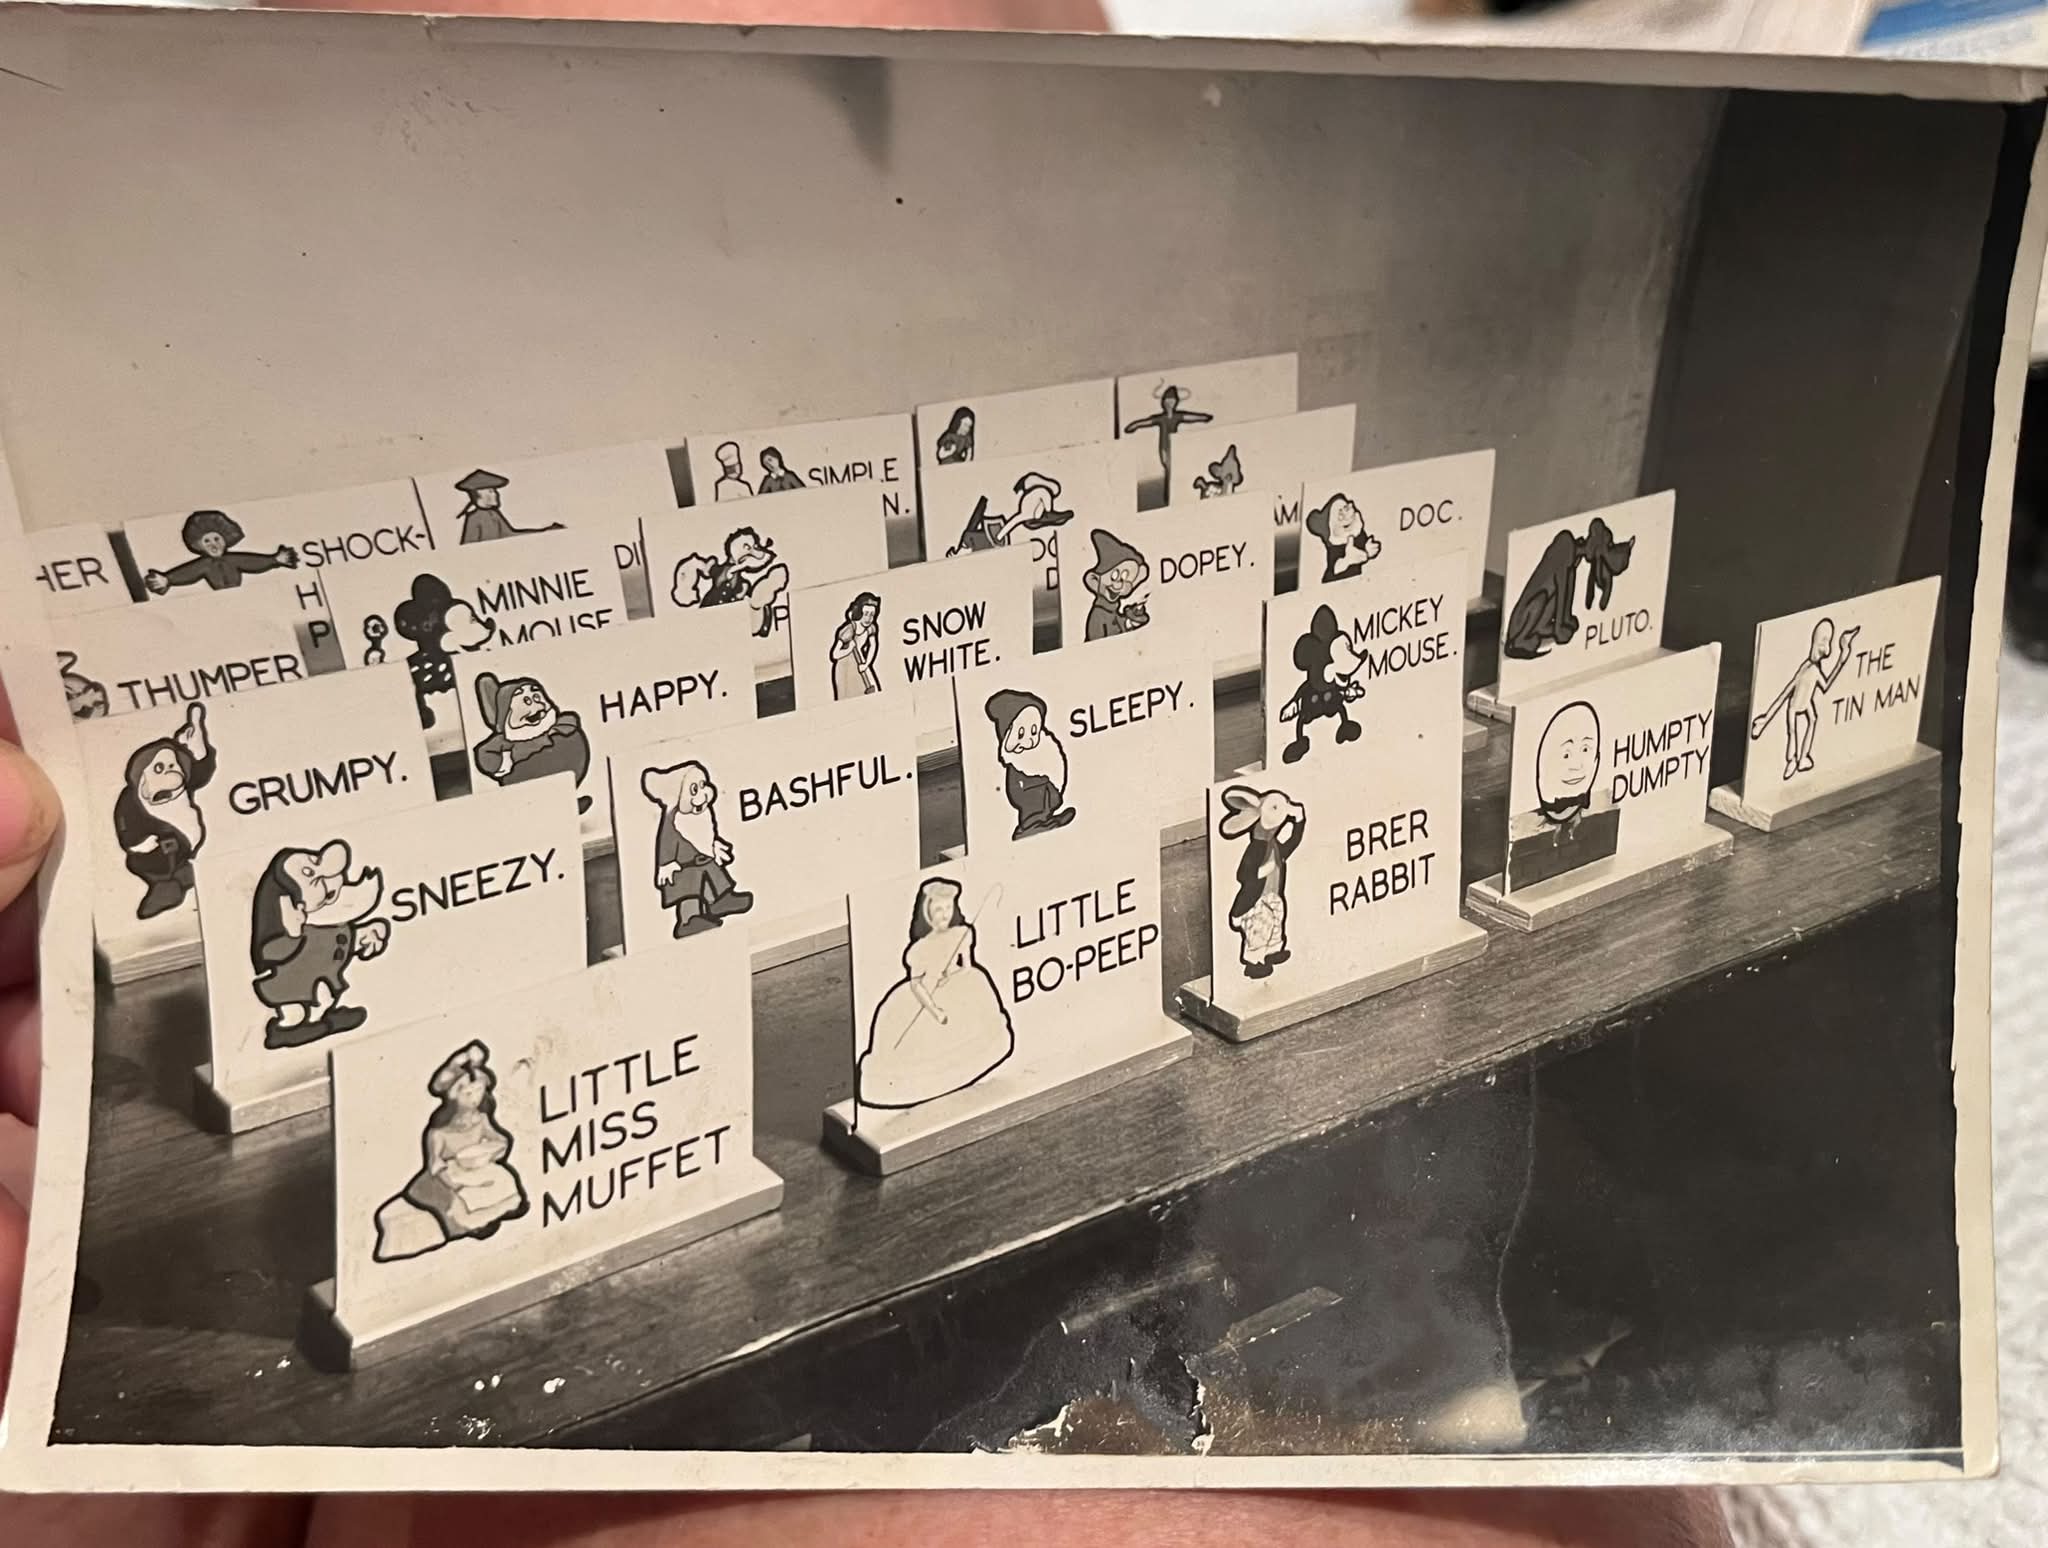 SIMPLE
N.
SHOCK-
H
P
HER
DI
DOC.
DOPEY.
MINNIE
MOUSE
SNOW
WHITE.
MICKEY
MOUSE.
PLUTO.
THUMPER
HAPPY.
SLEEPY.
THE
TIN MAN
HUMPTY
DUMPTY
GRUMPY.
BASHFUL.
SNEEZY.
BRER
RABBIT
LITTLE
BO-PEEP
LITTLE
MISS
MUFFET